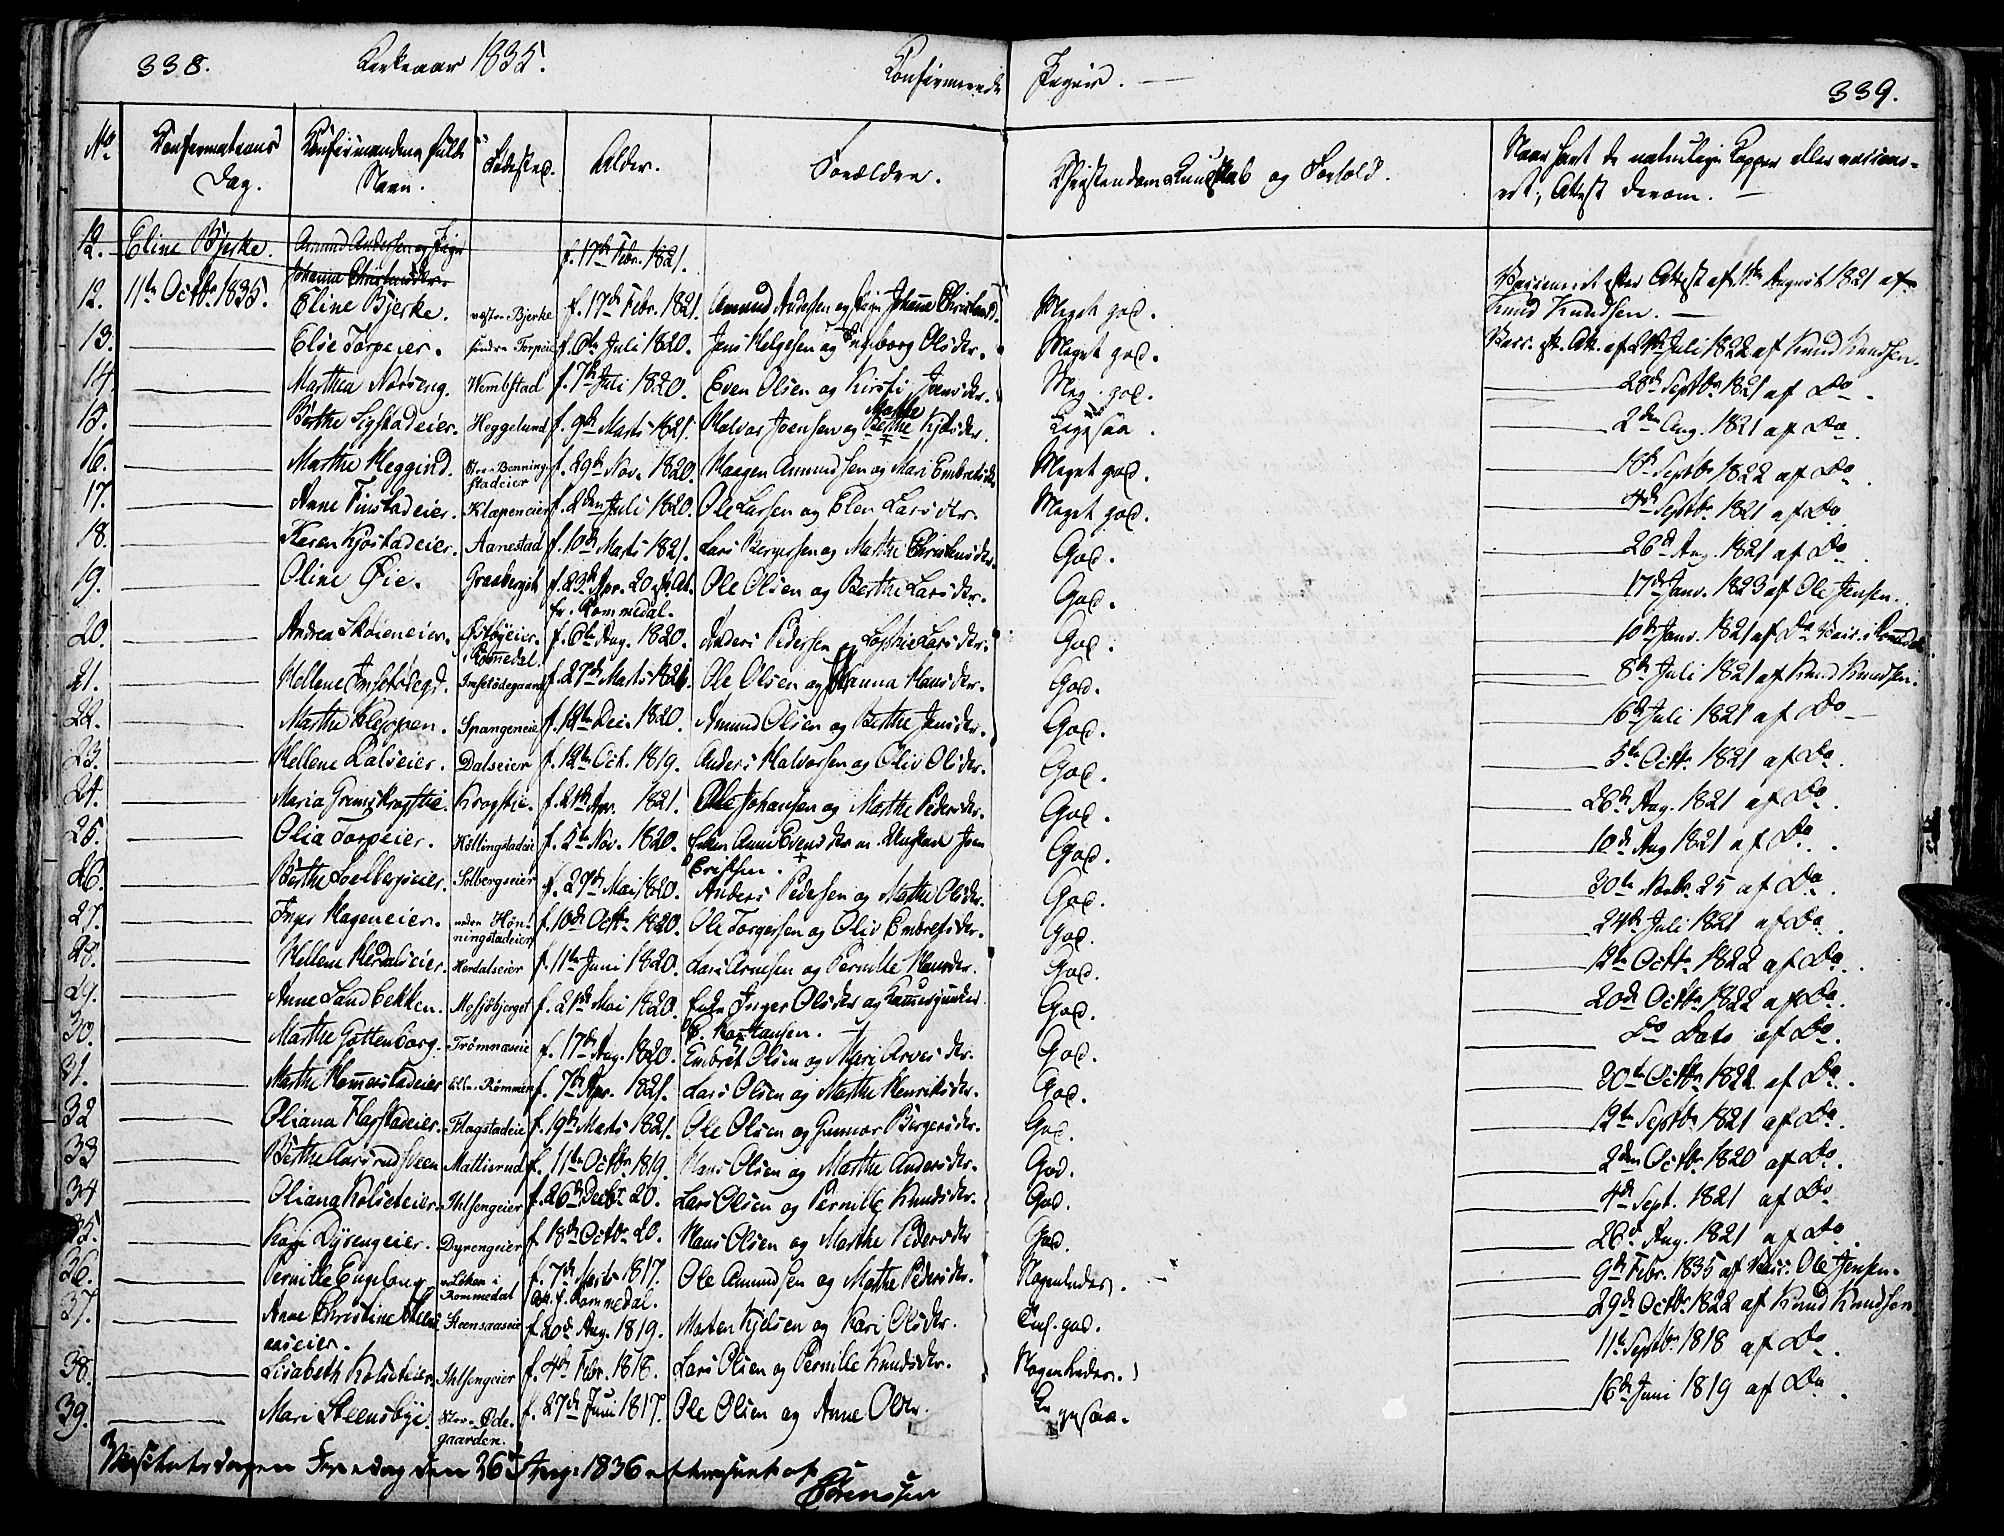 338. Kirkeaar 1835. Confirmerede Piger. 339.
No. Confirmations Dag. Confirmandens fulde Navn. Fødested. Alder. Forældre. Christendoms Kundskab og Forhold. Naar havt de naturlige Kopper eller vaccineret, Attest derom.
12. Eline Bjerke. Amund Andersen og Pige Johanna Christensdtr. f. 17de Febr. 1821.
12. 11te Octbr. 1835. Eline Bjerke. vestre Bjerke f. 17de Febr. 1821. Amund Andersen og Johanne Christensd. Meget god. Vaccineret efter Attest af 1ste August 1821 af Knud Knudsen.
13. Else Torpeier. søndre Torpeie f. 6te Juli 1820. Jens Helgesen og Ingeborg Olsdtr. Meget god. Vacc. efr. Att. af 24de Juli 1822 af Knud Knudsen.
14. Marthea Norseng. Wembstad f. 7de Juli 1820. Even Olsen og Kirsti Jensdtr. Meg. god. 28de Septbr. 1821 af Do.
15. Berthe Sigstadeier. Heggelund f. 9de Marts 1821. Halvor Joensen og Marthe Kjelsdtr. Ligesaa. 2den Aug. 1821 af Do.
16. Marthe Heggind. Str. Benningstadeier f. 29de Nov. 1820. Haagen Amundsen og Mari Embretsdtr. Meget god. 18de Septbr. 1822 af Do.
17. Anne Finstadeier. Klæpeneier f. 2den Juli 1820. Ole Larsen og Elen Larsdtr. Meget god. 4de Septbr. 1821 af Do.
18. Karen Kjostadeier. Aanestad f. 10de Marts 1821. Lars Børgersen og Marthe Christensdtr. God. 26de Aug. 1821 af Do.
19. Oline Øie. Graabergit f. 23de Apr. 20 efr. At. fr. Rommedal. Ole Olsen og Berthe Larsdtr. God. 17de Janv. 1823 af Ole Jensen.
20. Andrea Skøieneier. Østbyeier i Rommedal f. 6te Aug. 1820. Anders Pedersen og Sophie Larsdtr. God. 10de Janv. 1821 af Do Vacc. i Romedal.
21. Hellene Imsetødegd. Imsetødegaard f. 27de Marts 1821. Ole Olsen og Hanna Hansdtr. God. 8de Juli 1821 af Knud Knudsen.
22. Marthe Kleppen. Spangeneie f. 12te Dec. 1820. Amund Olsen og Berthe Jensdtr. God. 16de Juli 1821 af Do
23. Hellene Dalseier. Dalseier f. 12te Oct. 1819. Anders Halvorsen og Oliv Olsdtr. God. 5te Octbr. 1821 af Do.
24. Maria Grimskrogstie. Krogstie. f. 21de Apr. 1821. Ole Johansen og Marthe Pedersdtr. God. 26de Aug. 1821 af Do.
25. Olia Torpeier. Høllingstadei f. 5te Nov. 1820. Anne Evensdtr. Ungkarl Joen Eriksen. God. 10de Aug 1821 af Do.
26. Berthe Soelbergseier. Solbergseier f. 27de Mai 1820. Anders Pedersen og Marthe Olsdtr. God. 30te Novbr. 25 af Do.
27. Inger Hageneier. neden Hønningstadeier f. 10de Octbr. 1820. Ole Torgersen og Oliv Embretsdtr. God. 24de Juli 1821 af Do.
28. Hellene Herdalseier. Herdalseier f. 11te Juni 1820. Lars Arnesen og Pernille Hansdtr. God. 12te Octbr. 1822 af Do.
29. Anne Sandbekken. Messebjerget f. 21de Mai 1820. Enke Inger Olsdtr og Kammerjunker God. 20de Octbr. 1822 af Do.
30. Marthe Gottenborg. Trømnæsie f. 17de Aug. 1820. Embret Olsen og Mari Arnesdtr. God. Do Dato af Do.
31. Marthe Hommerstadeier lille Rømmen f. 7de Apr. 1821. Lars Olsen og Marthe Henriksdtr. God. 30te Octbr. 1822 af Do.
32 Oliana Flagstadeier. Flagstadeie f. 19de Marts 1821. Ole Olsen og Gunnor Børgersdtr. God. 12te Septbr. 1821 af Do.
33 Berthe Aasrudsteen Mattisrud f. 11te Octbr. 1819. Hans Olsen og Marthe Andersdtr. God. 2den Octbr. 1820 af Do.
34 Oliana Kolseteier. Ihlsengeier f. 26de Decbr. 20. Lars Olsen og Pernille Knudsdtr. God. 4de Sept. 1821 af Do
35. Kari Dyrengeier. Dyrengeier f. 18de Octbr. 20. Hans Olsen og Marthe Pedersdtr God. 26de Aug. 1821 af Do
36. Pernille Engelaug Leken i Rommedal f. 7de Marts 1817. Att. f. Rommedal. Ole Amundsen og Marthe Pedersdtr. Nogenledes. 9de Febr. 1835 af Vacc. Ole Jensen.
37. Anne Christine Steensaaseier. Steensaaseie f. 20de Aug. 1819. Morten Kjelsen og Kari Olsdtr. Tem. god. 29de Octbr. 1822 af Knud Knudsen
38. Lisabeth Kolseteier. Ihlsengeier f. 4de Febr. 1818. Lars Olsen og Pernille Knudsdtr. Nogenledes. 11te Septbr. 1818 af Do.
39. Mari Steensbye. Stor-Ødegaarden. f. 27de Juni 1817. Ole Olsen og Anne Olsdr. Ligesaa. 16de Juni 1819 af Do.
Visitatsdagen Fredag den 26de Aug. 1836 efterseet af
Sörenssen